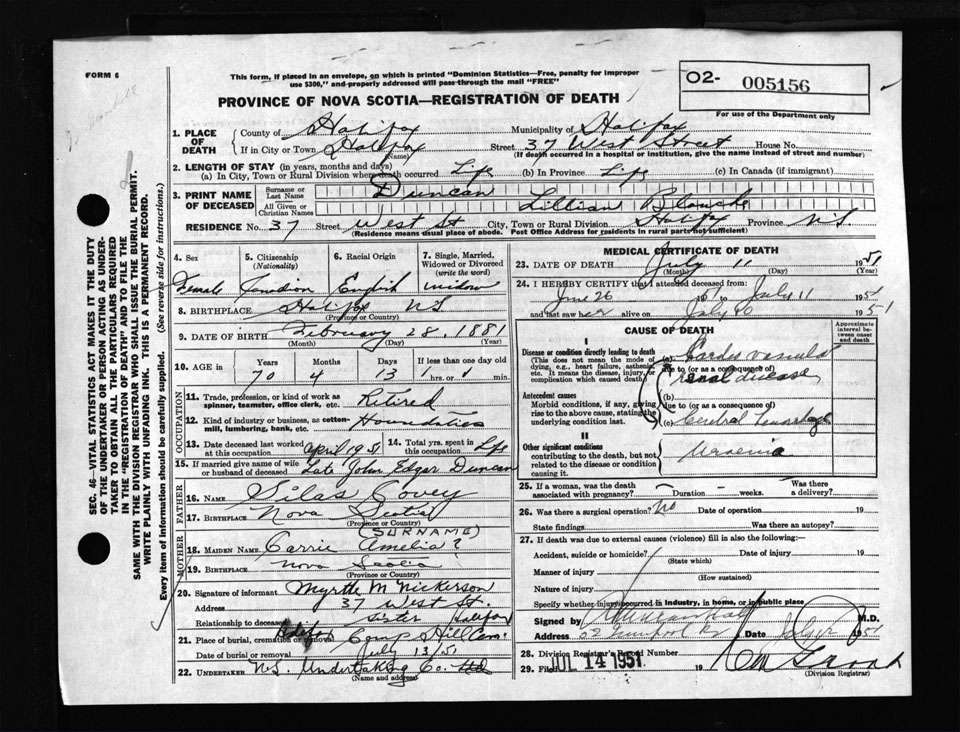 FORM 6
This form, if placed in an envelope, on which is printed "Dominion Statistics—Free, penalty for improper
use $300," and properly addressed will pass through the mail "FREE"
O2- 005156
For use of the Department only
PROVINCE OF NOVA SCOTIA—REGISTRATION OF DEATH
1. PLACE OF DEATH { County of Halifax Municipality of Halifax
If in City or Town Halifax (Name) Street 37 West Street House No.
(If death occurred in a hospital or institution, give the name instead of street and number)
2. LENGTH OF STAY (in years, months and days)
(a) In City, Town or Rural Division where death occurred Life (b) In Province Life (c) In Canada (if immigrant)
3. PRINT NAME OF DECEASED { Surname or Last Name Duncan
All Given or Christian Names Lillian Blanche
RESIDENCE No. 37 Street West St City, Town or Rural Division Halifax Province N.S.
(Residence means usual place of abode. Post Office Address for residents in rural parts not sufficient)
4. Sex Female
5. Citizenship (Nationality) Canadian
6. Racial Origin English
7. Single, Married, Widowed or Divorced (write the word) widow
8. BIRTHPLACE Halifax NS
(Province or Country)
9. DATE OF BIRTH February 28, 1881
(Month) (Day) (Year)
10. AGE Years 70 Months 4 Days 13 If less than one day old hrs. or
OCCUPATION
11. Trade, profession, or kind of work as spinner, teamster, office clerk, etc. Retired
12. Kind of industry or business, as cotton-mill, lumbering, bank, etc.
13. Date deceased last worked at this occupation April 1951
14. Total yrs. spent in this occupation Life
15. If married give name of wife or husband of deceased Late John Edgar Duncan
FATHER
16. NAME Silas Covey
17. BIRTHPLACE Nova Scotia
(Province or Country)
MOTHER
(SURNAME)
18. MAIDEN NAME Carrie Amelia ?
19. BIRTHPLACE Nova Scotia
(Province or Country)
20. Signature of informant Myrtle M Nickerson
Address 37 West St.
Relationship to deceased Sister Halifax
21. Place of burial, cremation or removal Halifax Camp Hill Cem.
Date of burial or removal July 13/51
22. UNDERTAKER N.S. Undertaking Co. Ltd
(Name and address)
MEDICAL CERTIFICATE OF DEATH
23. DATE OF DEATH July 11 1951
(Month) (Day) (Year)
24. I HEREBY CERTIFY that I attended deceased from:
June 26 to July 11 1951
and last saw her alive on July 10 1951
CAUSE OF DEATH
Approximate interval between onset and death
I
Disease or condition directly leading to death
(This does not mean the mode of dying, e.g., heart failure, asthenia, etc. It means the disease, injury, or complication which caused death)
(a) Cardio vascular
due to (or as a consequence of)
renal disease
Antecedent causes
Morbid conditions, if any, giving rise to the above cause, stating the underlying condition last.
(b)
due to (or as a consequence of)
(c) Cerebral hemorrhage
II
Other significant conditions
contributing to the death, but not related to the disease or condition causing it.
Uraemia
25. If a woman, was the death associated with pregnancy? Duration – weeks. Was there a delivery?
26. Was there a surgical operation? No Date of operation 19
State findings Was there an autopsy?
27. If death was due to external causes (violence) fill in also the following:—
Accident, suicide or homicide? Date of injury 19
(State which)
Manner of injury
(How sustained)
Nature of injury
Specify whether injury occurred in industry, in home, or in public place
Signed by M.D.
Address Date July 1951
28. Division Registrar's Record Number
29. Filed JUL 14 1951 19
(Division Registrar)
SEC. 46—VITAL STATISTICS ACT MAKES IT THE DUTY
OF THE UNDERTAKER OR PERSON ACTING AS UNDER-
TAKER TO OBTAIN ALL THE PARTICULARS REQUIRED
IN THE "REGISTRATION OF DEATH" AND TO FILE THE
SAME WITH THE DIVISION REGISTRAR WHO SHALL ISSUE THE BURIAL PERMIT.
WRITE PLAINLY WITH UNFADING INK. THIS IS A PERMANENT RECORD.
Every item of information should be carefully supplied. (See reverse side for instructions.)